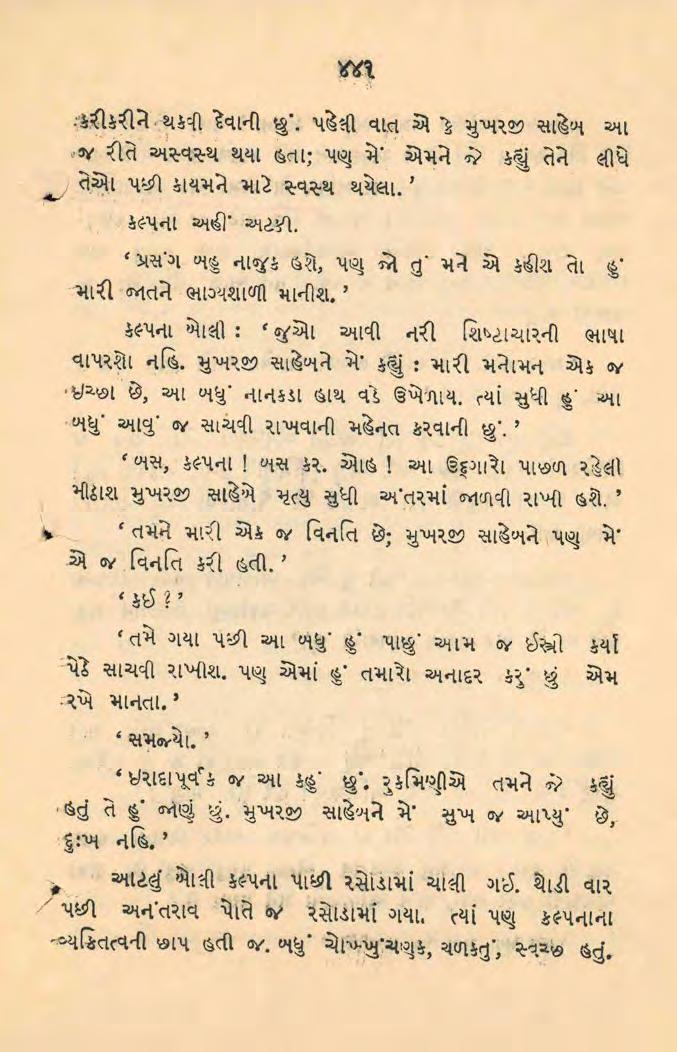 ૪૪૧
કરીકરીને થકવી દેવાની છું. પહેલી વાત એ કે મુખરજી સાહેબ આ
જ રીતે અસ્વસ્થ થયા હતા; પણ મેં એમને જે કહ્યું તેને લીધે
તેઓ પછી કાયમને માટે સ્વસ્થ થયેલા.’
કલ્પના અહીં અટકી.
‘પ્રસંગ બહુ નાજુક હશે, પણ જો તું મને એ કહીશ તો હું
મારી જાતને ભાગ્યશાળી માનીશ.’
કલ્પના બોલી : ‘જુઓ આવી નરી શિષ્ટાચારની ભાષા
વાપરશો નહિ. મુખરજી સાહેબને મેં કહ્યું : મારી મનોમન એક જ
ઇચ્છા છે, આ બધું નાનકડા હાથ વડે ઉખેળાય. ત્યાં સુધી હું આ
બધું આવું જ સાચવી રાખવાની મહેનત કરવાની છું.’
‘બસ, કલ્પના ! બસ કર. ઓહ ! આ ઉદ્ગારો પાછળ રહેલી
મીઠાશ મુખરજી સાહેબે મૃત્યુ સુધી અંતરમાં જાળવી રાખી હશે.’
‘તમને મારી એક જ વિનતિ છે; મુખરજી સાહેબને પણ મેં
એ જ વિનતિ કરી હતી.’
‘કઈ ?’
‘તમે ગયા પછી આ બધું હું પાછું આમ જ ઈસ્ત્રી કર્યા
પેઠે સાચવી રાખીશ. પણ એમાં હું તમારો અનાદર કરું છું એમ
રખે માનતા.’
‘સમજ્યો.’
‘ઇરાદાપૂર્વક જ આ કહું છું. રુકમિણીએ તમને જે કહ્યું
હતું તે હું જાણું છું. મુખરજી સાહેબને મેં સુખ જ આપ્યું છે,
દુઃખ નહિ.’
આટલું બોલી કલ્પના પાછી રસોડામાં ચાલી ગઈ. થોડી વાર
પછી અનંતરાવ પોતે જ રસોડામાં ગયા. ત્યાં પણ કલ્પનાના
વ્યક્તિત્વની છાપ હતી જ. બધું ચોખ્ખુંચણક, ચળકતું, સ્વચ્છ હતું.